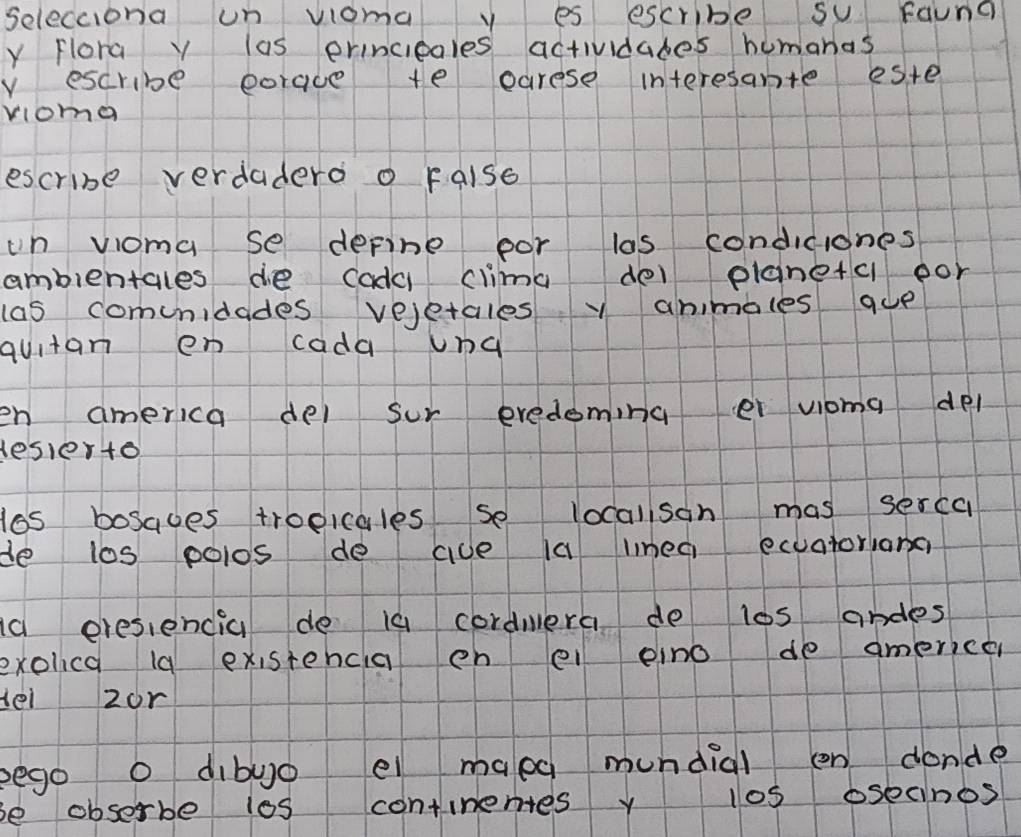 selecciona un vioma y es escribe su fauna
y flora y las principales actividades humanas
y escribe porque te parese interesante este
vioma
escribe verdadero o false
un vioma se define por las condiciones
ambientales de cada clima del planeta por
las comunidades vejetales y animales que
quitan en cada una
en america del sur predomina el vioma del
desierto
los bosques tropicales se localisan mas serca
de los polos de que la linea ecuatoriana
la presiencia de la cordillera de los andes
explica la existencia en el pino de america
del zur
pego o dibujo el mapa mundial en donde
se obserbe los continentes y los oseanos